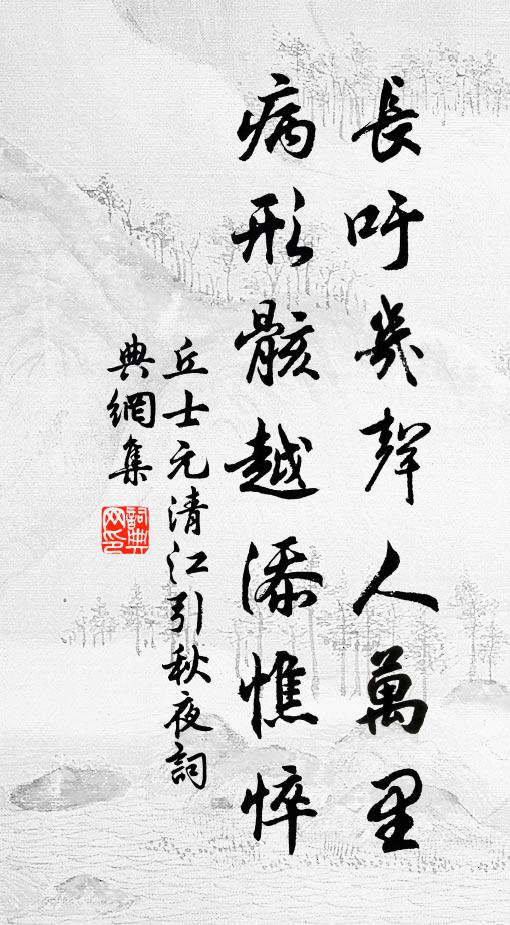 長吁幾聲人萬里
病形骸越添憔悴
丘士元清江引秋夜詞
典網集
詞典
网印